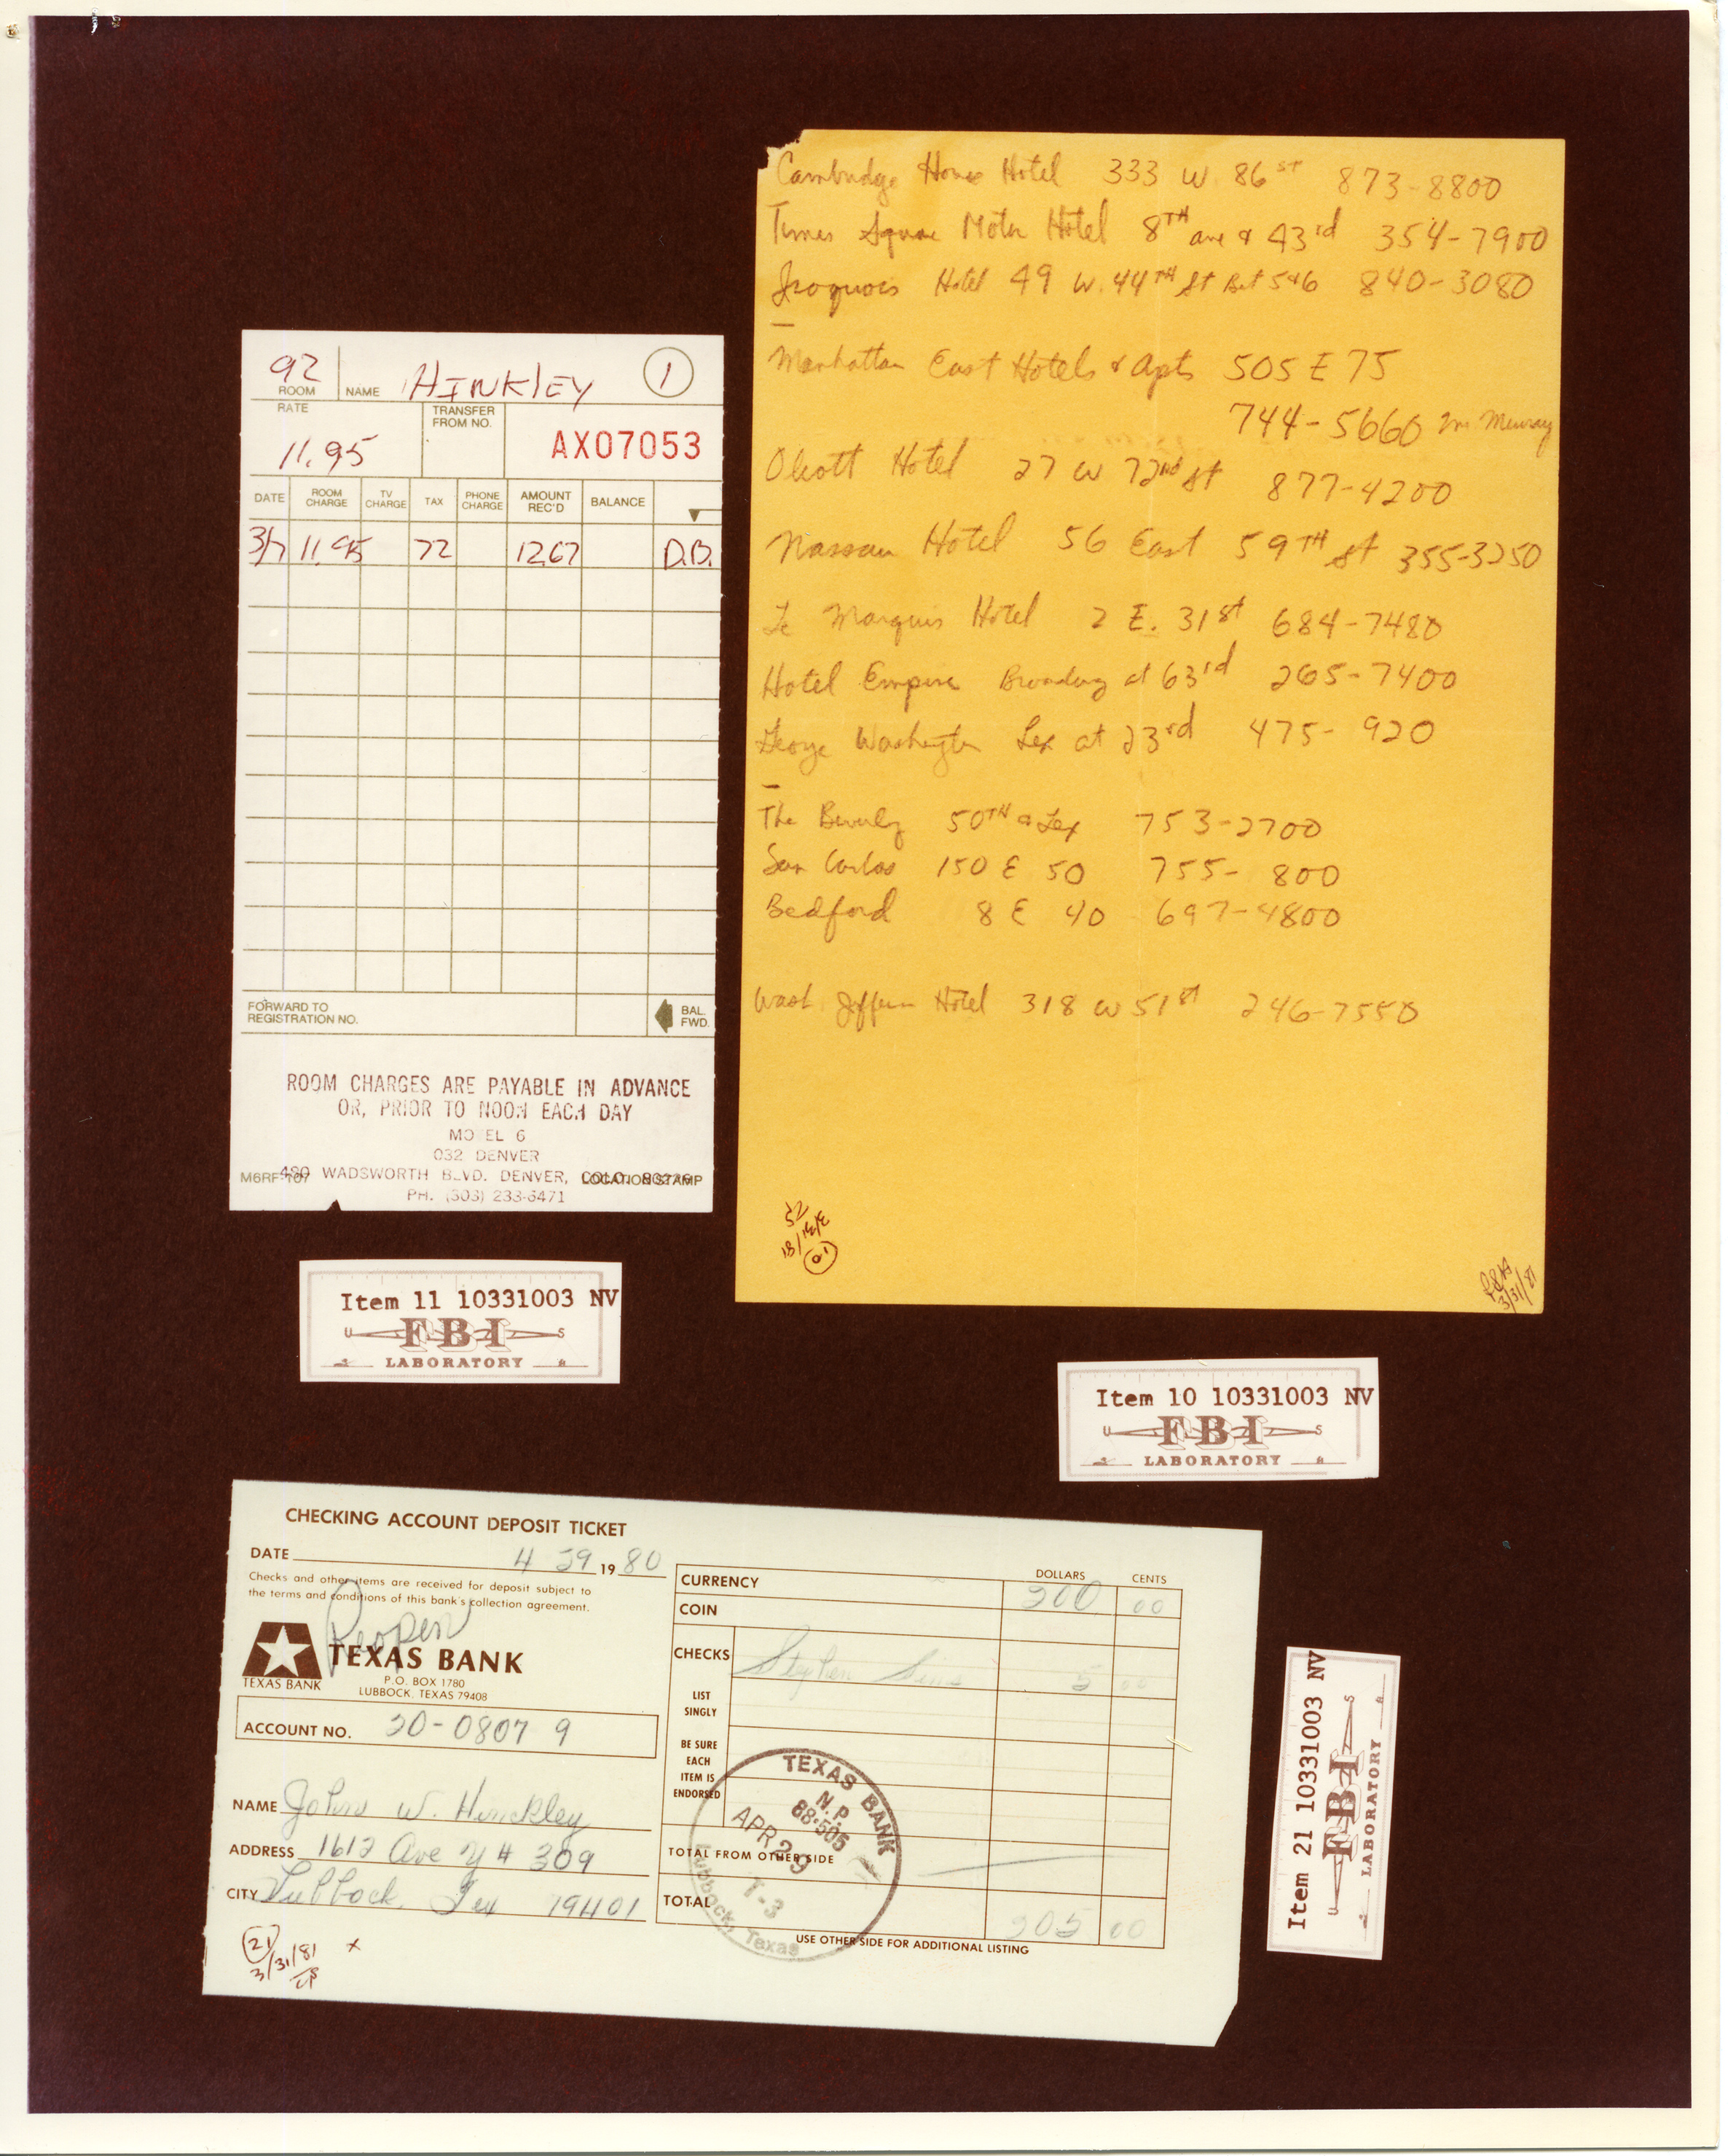 92
ROOM
NAME HINKLEY 1
RATE
11.95
TRANSFER
FROM NO.
AX07053
DATE ROOM CHARGE TV CHARGE TAX PHONE CHARGE AMOUNT REC'D BALANCE
3/7 11.95 72 12.67 D.B.
FORWARD TO
REGISTRATION NO.
BAL.
FWD.
ROOM CHARGES ARE PAYABLE IN ADVANCE
OR, PRIOR TO NOON EACH DAY
MO EL 6
032 DENVER
480 WADSWORTH BLVD. DENVER, COLO.
M6RF-107
LOCATION STAMP
PH. (303) 233-6471
Item 11 10331003 NV
U FBI S
LABORATORY
Cambridge House Hotel 333 W 86st 873-8800
Times Square Motor Hotel 8TH ave & 43rd 354-7900
Iroquois Hotel 49 W. 44TH St Bet 5+6 840-3080
—
Manhattan East Hotels & Apts 505 E 75
744-5660 Murray
Olcott Hotel 27 W 72nd St 877-4200
Nassau Hotel 56 East 59TH St 355-3250
Le Marquis Hotel 2 E. 31st 684-7480
Hotel Empire Broadway at 63rd 265-7400
George Washington Lex at 23rd 475-920
—
The Beverly 50TH & Lex 753-2700
San Carlos 150 E 50 755-800
Bedford 8 E 40 697-4800
Wash Jefferson Hotel 318 W 51st 246-7550
3/31/81
3/31/81
Item 10 10331003 NV
U FBI S
LABORATORY
CHECKING ACCOUNT DEPOSIT TICKET
DATE 4 29 19 80
Checks and other items are received for deposit subject to
the terms and conditions of this bank's collection agreement.
Reopen
TEXAS BANK
TEXAS BANK
P.O. BOX 1780
LUBBOCK, TEXAS 79408
ACCOUNT NO. 20-0807 9
NAME John W. Hinckley
ADDRESS 1612 Ave Y # 309
CITY Lubbock, Tex 79401
DOLLARS CENTS
CURRENCY 200 00
COIN
CHECKS Stephen Sims 5 00
LIST
SINGLY
BE SURE
EACH
ITEM IS
ENDORSED
TOTAL FROM OTHER SIDE
TOTAL 205 00
USE OTHER SIDE FOR ADDITIONAL LISTING
TEXAS BANK
N.P.
88-505
APR 29
T-3
Lubbock, Texas
21
3/31/81
x
Item 21 10331003 NV
U FBI S
LABORATORY